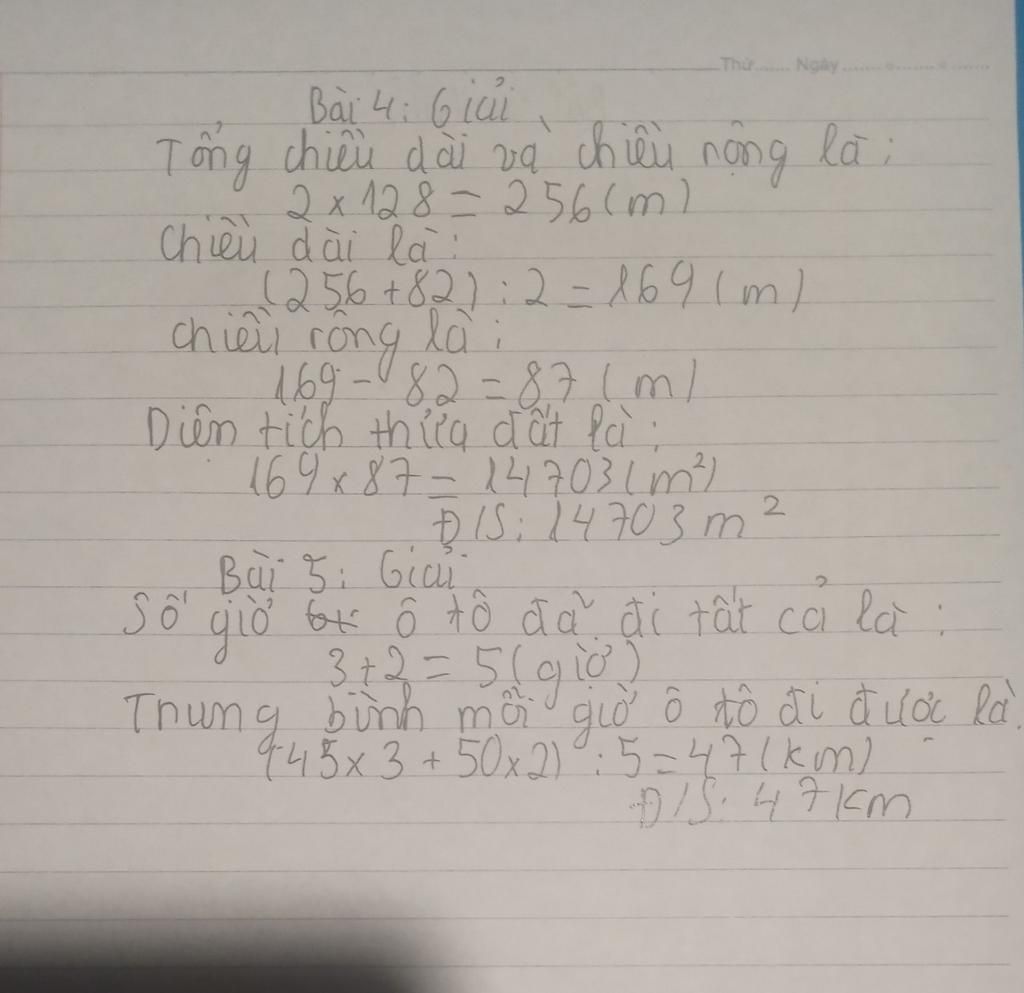 Thứ...... Ngày....................
Bài 4: Giải
Tổng chiều dài và chiều rộng là:
2 x 128 = 256 (m)
Chiều dài là:
(256 + 82) : 2 = 169 (m)
chiều rộng là:
169 - 82 = 87 (m)
Diện tích thửa đất là:
169 x 87 = 14703 (m²)
Đ/S: 14703 m²
Bài 5: Giải
Số giờ ô tô đã đi tất cả là:
3 + 2 = 5 (giờ)
Trung bình mỗi giờ ô tô đi được là:
(45 x 3 + 50 x 2) : 5 = 47 (km)
Đ/S: 47 km